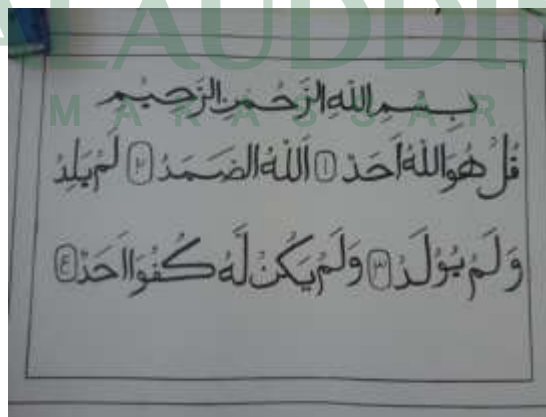 ALAUDDI
MAKASSAR
بِسْمِ اللّٰهِ الرَّحْمٰنِ الرَّحِيْمِ
قُلْ هُوَ اللّٰهُ اَحَدٌ ۝١ اَللّٰهُ الصَّمَدُ ۝٢ لَمْ يَلِدْ
وَلَمْ يُوْلَدْ ۝٣ وَلَمْ يَكُنْ لَّهُ كُفُوًا اَحَدٌ ۝٤